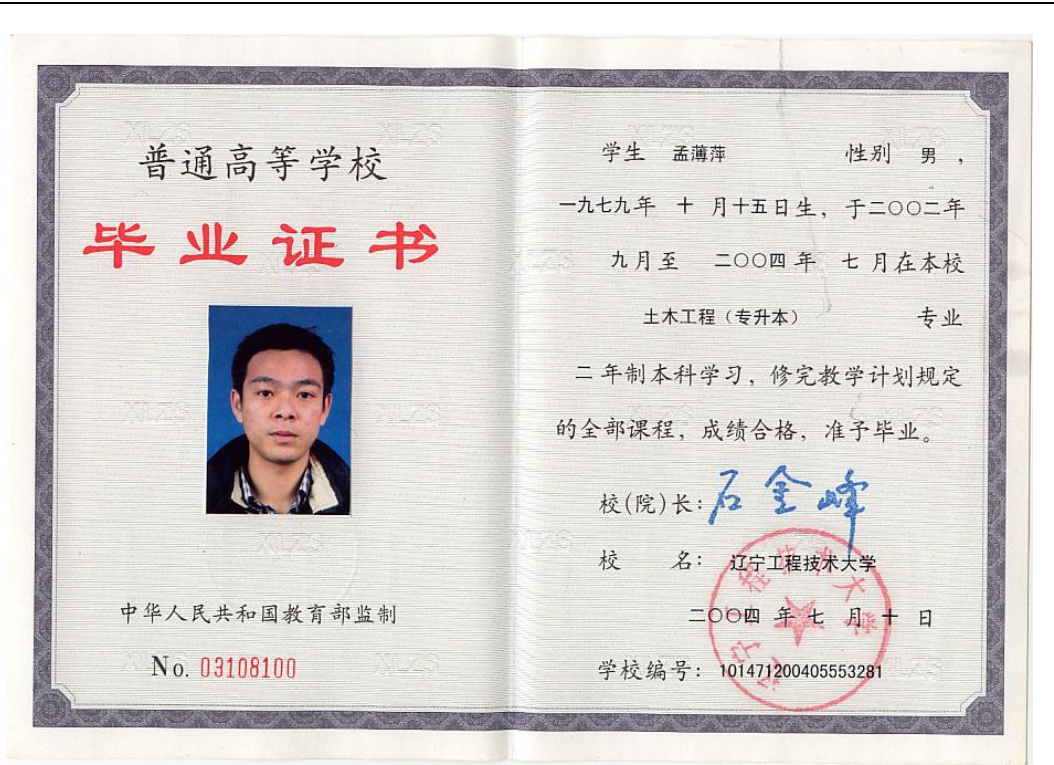 普通高等学校
毕业证书
中华人民共和国教育部监制
No. 03108100
学生 孟薄萍 性别 男，
一九七九年 十 月十五日生，于二〇〇二年
九月至 二〇〇四 年 七 月在本校
土木工程（专升本） 专业
二 年制本科学习，修完教学计划规定
的全部课程，成绩合格，准予毕业。
校(院)长：石金峰
校 名： 辽宁工程技术大学
二〇〇四 年 七 月 十 日
学校编号： 101471200405553281
辽宁工程技术大学
XLZS
XLZS
XLZS
XLZS
XLZS
XLZS
XLZS
XLZS